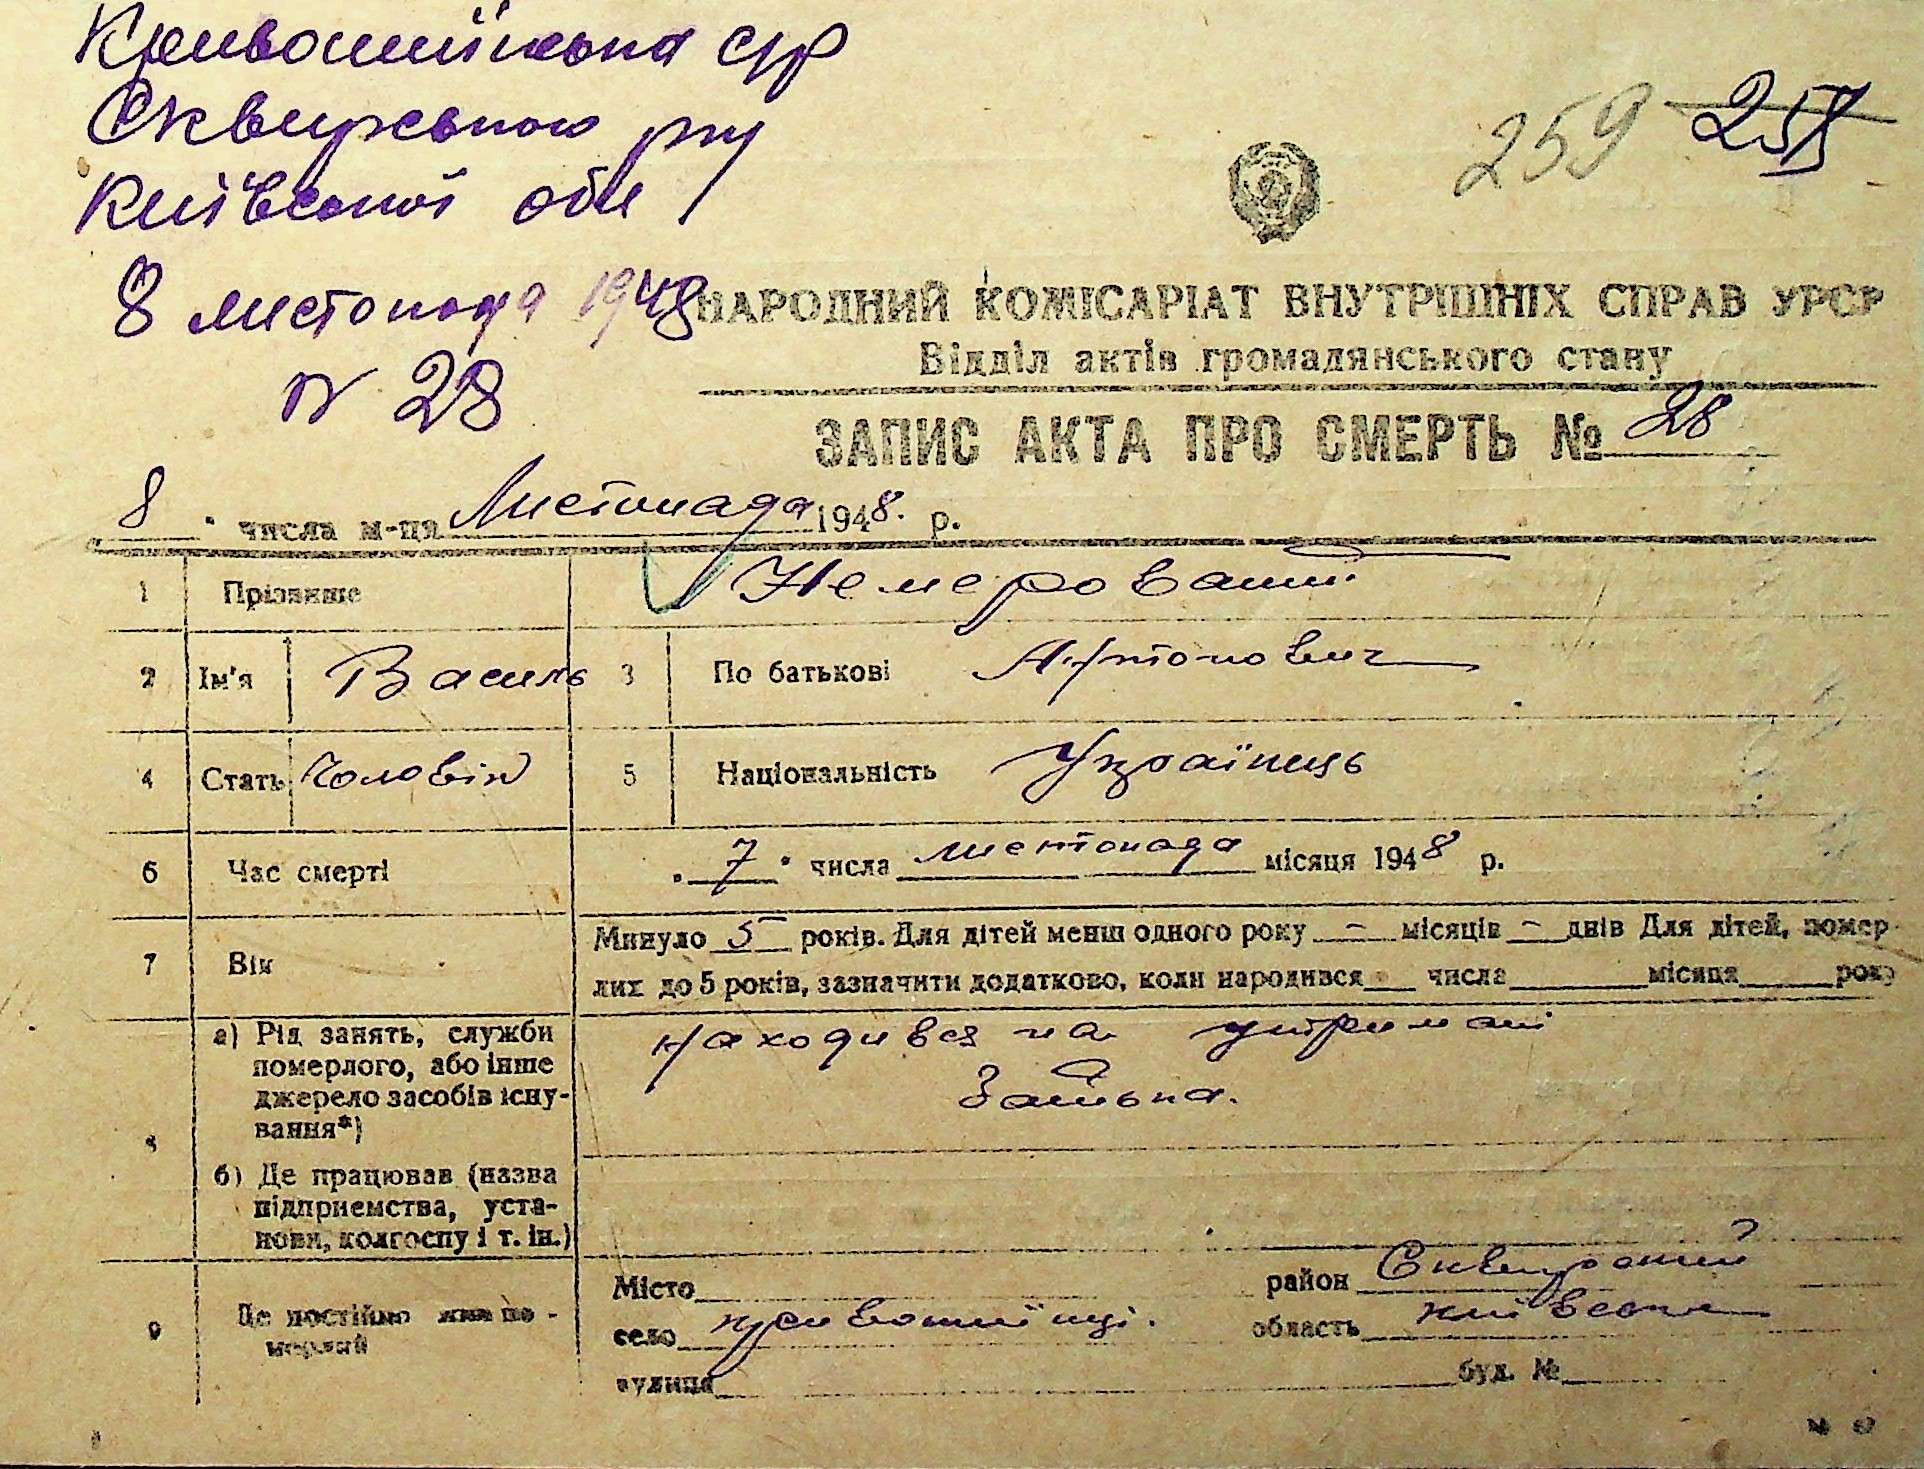 Кривошиїнська с/р
Сквирського р-ну
Київської обл
259 258
8 листопада 1948
НАРОДНИЙ КОМІСАРІАТ ВНУТРІШНІХ СПРАВ УРСР
Відділ актів громадянського стану
N 28
ЗАПИС АКТА ПРО СМЕРТЬ № 28
8 " числа м-ця Листопада 1948. р.
1 Прізвище Немеровський
2 Ім'я Василь 3 По батькові Антонович
4 Стать Чоловік 5 Національність Українець
6 Час смерті "7" числа листопада місяця 1948 р.
7 Вік Минуло 5 років. Для дітей менш одного року – місяців – днів Для дітей, помер-
лих до 5 років, зазначити додатково, коли народився числа місяця року
8 а) Рід занять, служби померлого, або інше джерело засобів існування*) находився на утримані
батька.
б) Де працював (назва
підприємства, уста-
нови, колгоспу і т. ін.)
9 Де постійно жив по-
мерлий
Місто район Сквирський
село Кривошиїнці. область Київська
вулиця буд. №